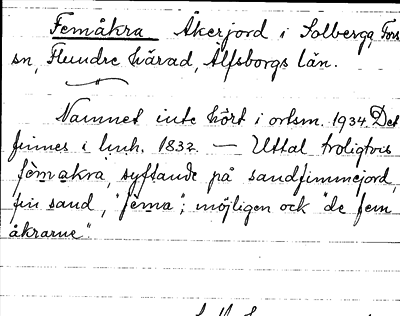 Femåkra Åkerjord i Solberga, Fors
sn, Flundre härad, Älfsborgs län.
Namnet inte hört i ortsm. 1934. Det
finnes i lmh. 1832. — Uttal troligtvis
fèmakra, syftande på sandfimmejord,
fin sand, "fèma"; möjligen ock "de fem
åkrarne".